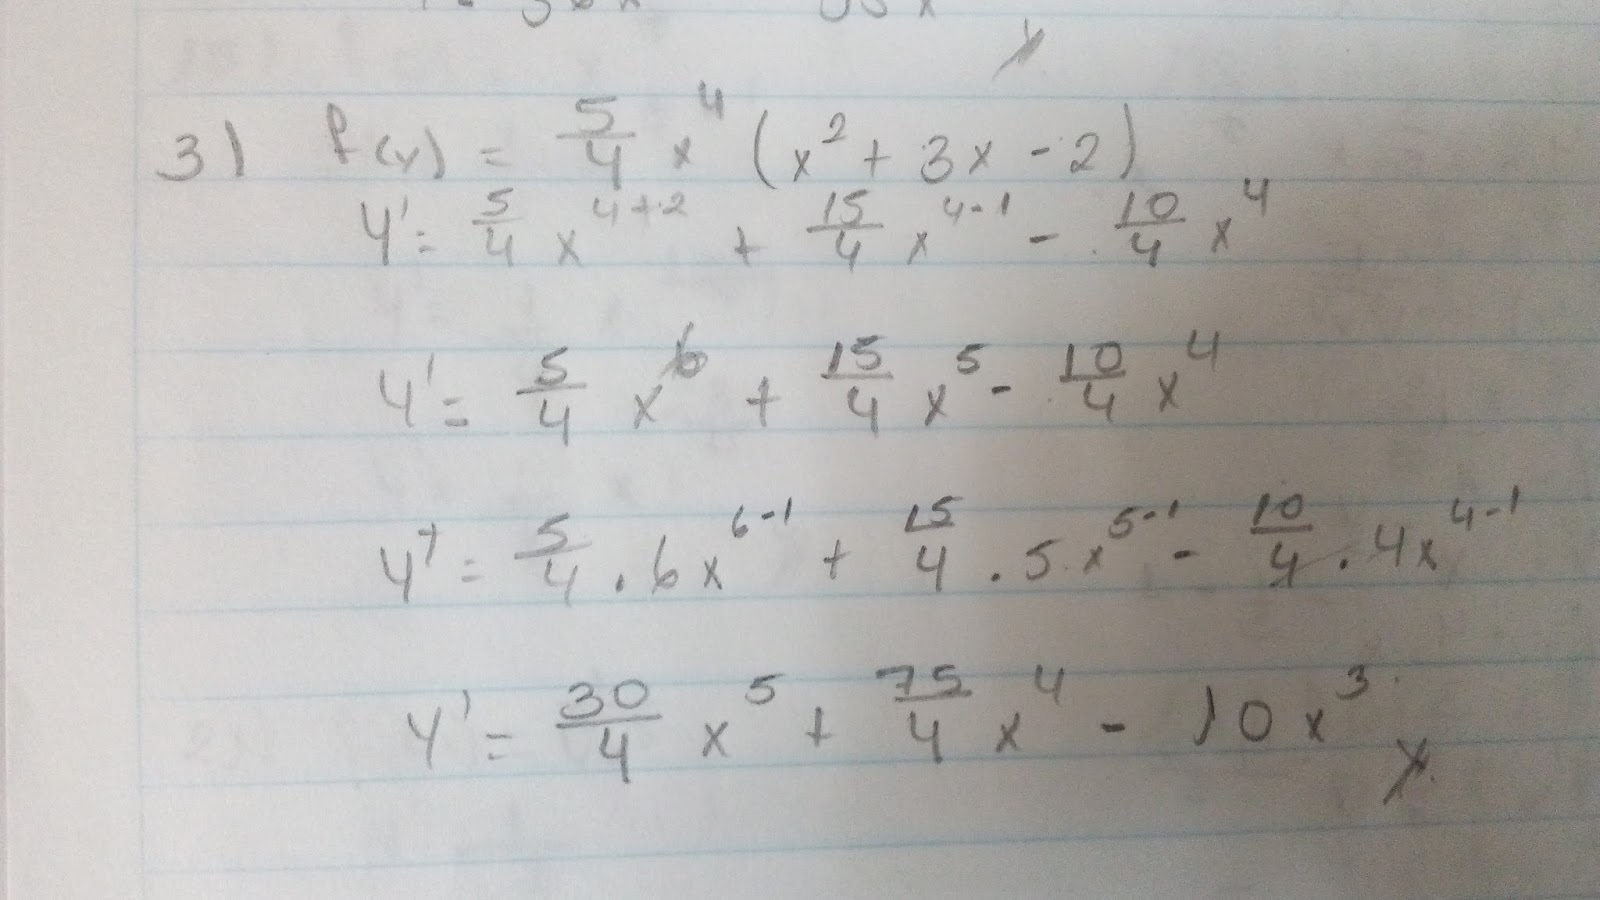 3) f(x) = 5/4 x^4 (x^2 + 3x - 2)
y' = 5/4 x^(4+2) + 15/4 x^(4-1) - 10/4 x^4
y' = 5/4 x^6 + 15/4 x^5 - 10/4 x^4
y' = 5/4 . 6x^(6-1) + 15/4 . 5x^(5-1) - 10/4 . 4x^(4-1)
y' = 30/4 x^5 + 75/4 x^4 - 10x^3